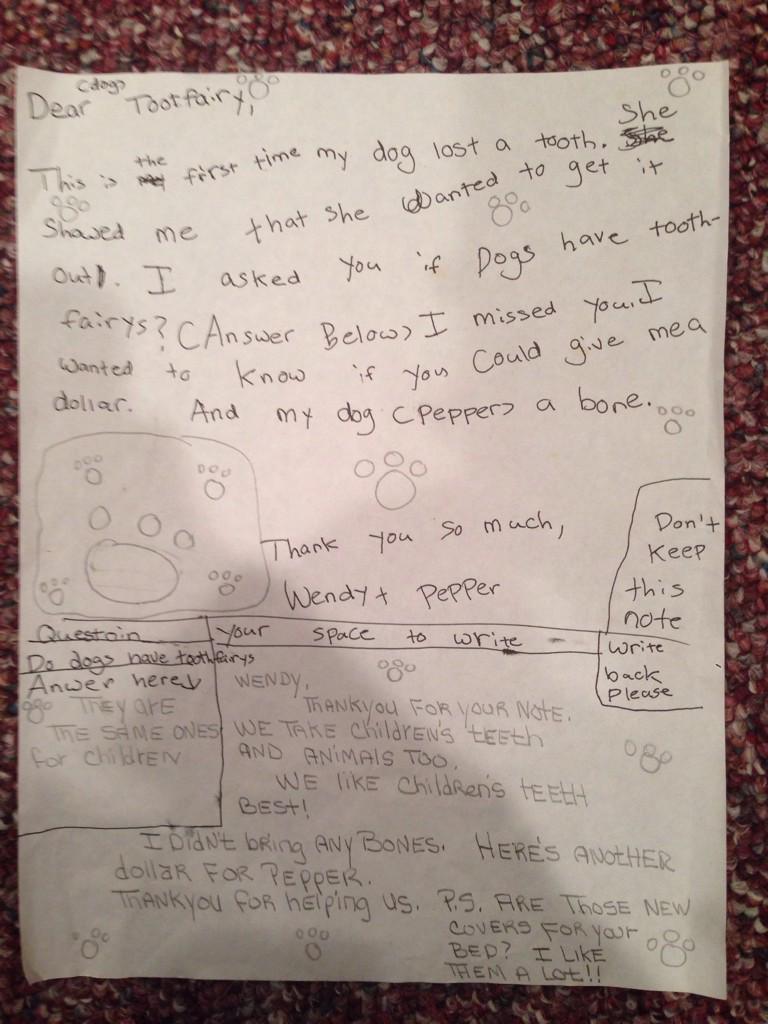 (dog)
Dear Tootfairy,
This is the first time my dog lost a tooth. She
Showed me that she wanted to get it
out. I asked you if Dogs have tooth-
fairys? (Answer Below) I missed you. I
wanted to know if you could give me a
dollar. And my dog (Pepper) a bone.
Thank you so much,
Wendy + Pepper
Don't
Keep
this
note
write
back
please
Questoin
your space to write
Do dogs have toothfairys
Anwer here
THEY ARE
THE SAME ONES
for children
WENDY,
THANKYOU FOR YOUR NOTE.
WE TAKE CHILDREN'S TEETH
AND ANIMALS TOO.
WE LIKE CHILDREN'S TEETH
BEST!
I DIDN'T bring ANY BONES. HERE'S ANOTHER
dollar FOR PEPPER.
THANKYOU FOR helping US. P.S. ARE THOSE NEW
COVERS FOR your
BED? I LIKE
THEM A LOT!!